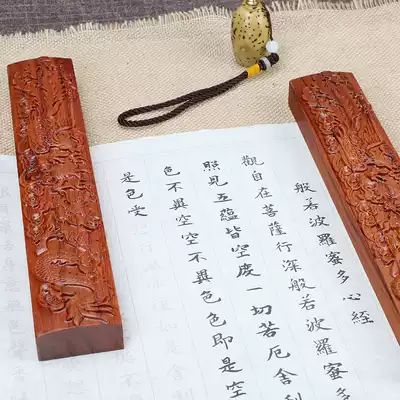 般若波羅蜜多心經
觀自在菩薩行深般若波羅蜜多
照見五蘊皆空度一切苦厄舍利
色不異空空不異色色即是空
是色受